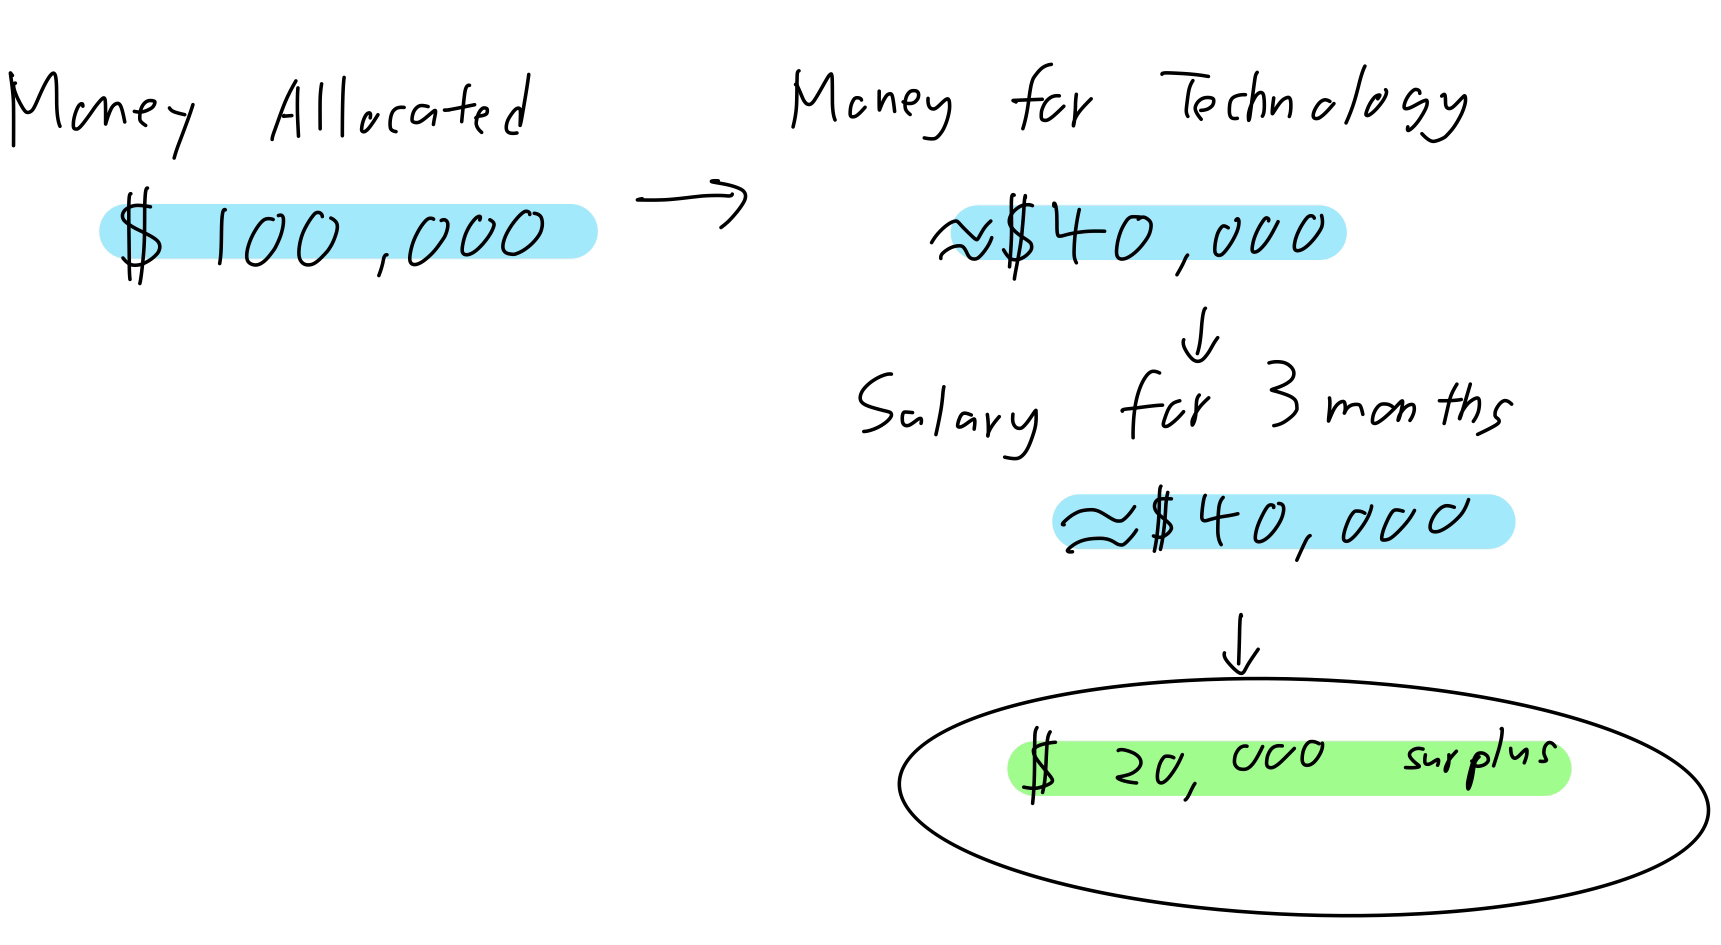 Money Allocated
$ 100,000
Money for Technology
≈$40,000
Salary for 3 months
≈$40,000
$ 20,000 surplus